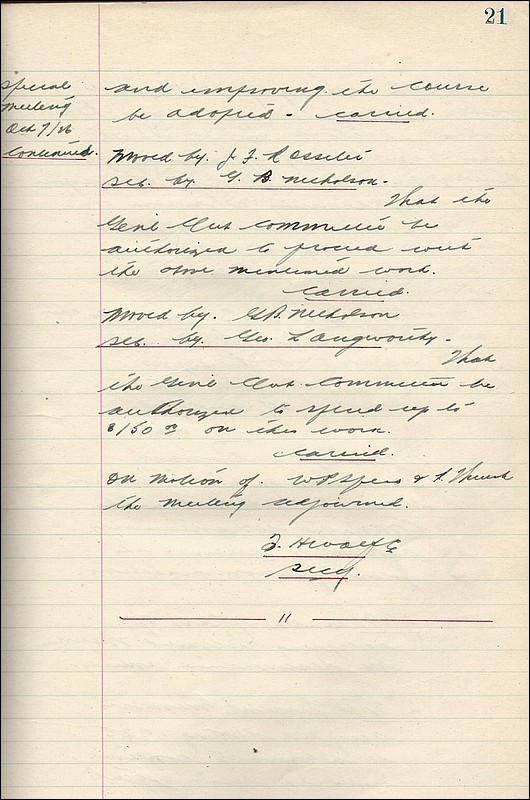 21
Special
Meeting
Oct 7/26
Continued.
and improving the course
be adopted - Carried.
Moved by J. F. Rosseter
sec. by G. B. Nicholson -
That the
Genl Club Committee be
authorized to proceed with
the above mentioned work.
Carried.
Moved by. G.B. Nicholson
sec. by. Geo. Langworthy -
That
the Genl Club Committee be
authorized to spend up to
$150 00 on this work.
Carried.
On motion of. W.P. Spero &
the meeting adjourned.
Secy.
11